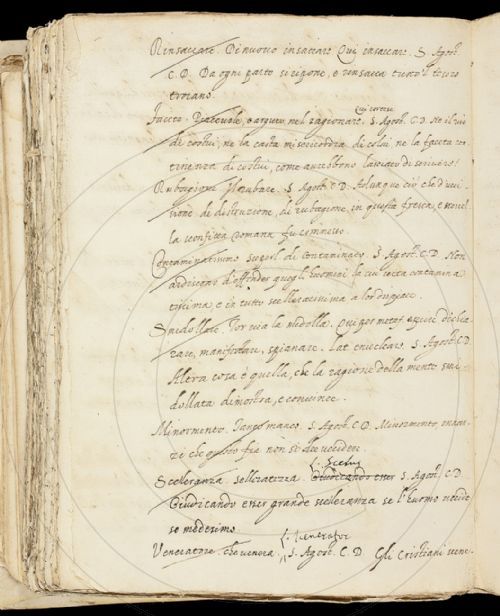 Rinsaccare. Di nuovo insaccare. Qui insaccare. S. Agost.
C. D. Da ogni parte si ripone, e rinsacca tutto 'l tesoro
troiano.
Faceto. Piacevole, e arguto nel ragionare. Qui cortese S. Agost. C. D. Ne il rio
di costui, ne la casta misericordia di colui, ne la faceta con
tinenza di costui, come averebbono lasciato di scrivere?
Rubagione. Il rubare. S. Agost. C. D. Adunque ciò che d'ucci
sione, di distruzione, di rubagione, in questa fresca, e novel
la sconfitta Romana fu commesso.
Contaminatissimo. superl. di Contaminato. S. Agost. C. D. Non
ardiscano d'offender quegli Uomini la cui setta contamina
tissima, e in tutto scelleratissima a lor dispiace.
Smidollare. Tor via la midolla. Qui per metaf. dichia
rare, manifestare, spianare. Lat. enucleare. S. Agost. C. D.
Altra cosa è quella, che la ragione della mente smi
dollata dimostra, e convince.
Minormente. Tanto manco. S. Agost. C. D. Minormente innan
zi che questo fia non si dee uccidere.
Scelleranza. scelleratezza. L. Scelus S. Agost. C. D.
Giudicando esser grande scelleranza se l'Uomo uccide
se medesimo.
Veneratore. che venera. L. Venerator S. Agost. C. D. Gli Cristiani vene-